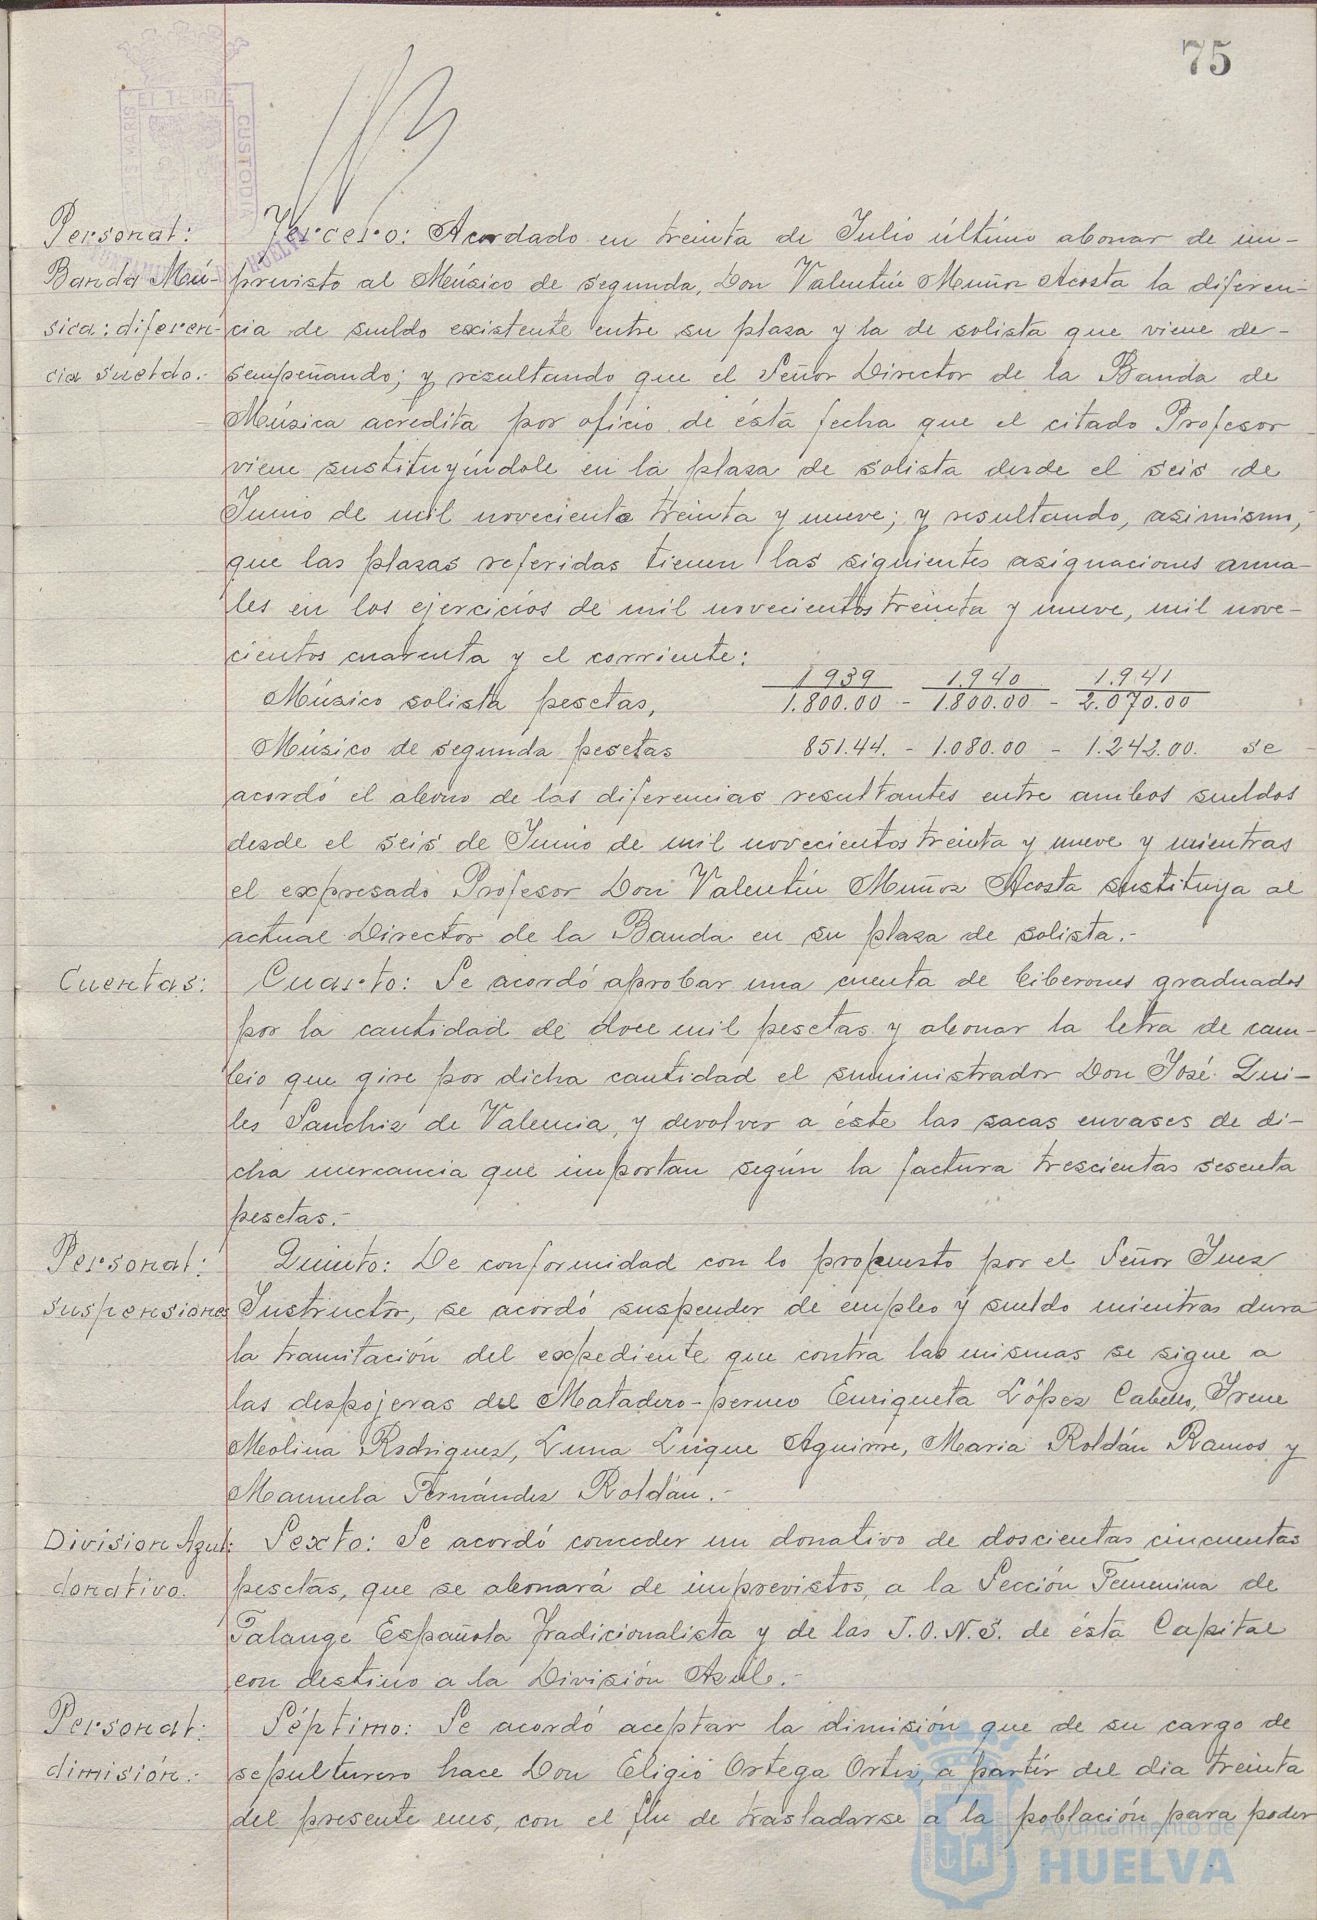 75
Personal: Tercero: Acordado en treinta de Julio último abonar de im-
Banda Mú- previsto al Músico de segunda, Don Valentín Muñoz Acosta la diferen-
sica: diferen- cia de sueldo existente entre su plaza y la de solista que viene de-
cia sueldo.- sempeñando; y resultando que el Señor Director de la Banda de
Música acredita por oficio de ésta fecha que el citado Profesor
viene sustituyéndole en la plaza de solista desde el seis de
Junio de mil novecientos treinta y nueve; y resultando, asimismo,
que las plazas referidas tienen las siguientes asignaciones anua-
les en los ejercicios de mil novecientos treinta y nueve, mil nove-
cientos cuarenta y el corriente:
1939 1.940 1.941
Músico solista pesetas, 1.800.00 - 1.800.00 - 2.070.00
Músico de segunda pesetas 851.44. - 1.080.00 - 1.242.00. se
acordó el abono de las diferencias resultantes entre ambos sueldos
desde el seis de Junio de mil novecientos treinta y nueve y mientras
el expresado Profesor Don Valentín Muñoz Acosta sustituya al
actual Director de la Banda en su plaza de solista.-
Cuentas: Cuarto: Se acordó aprobar una cuenta de biberones graduados
por la cantidad de doce mil pesetas y abonar la letra de cam-
bio que gire por dicha cantidad el suministrador Don José Qui-
les Sanchiz de Valencia, y devolver a éste las sacas envases de di-
cha mercancia que importan según la factura trescientas sesenta
pesetas.-
Personal: Quinto: De conformidad con lo propuesto por el Señor Juez
suspensiones Instructor, se acordó suspender de empleo y sueldo mientras dura
la tramitación del expediente que contra las mismas se sigue a
las despojeras del Matadero-permeo Enriqueta López Cabello, Irene
Molina Rodriguez, Luna Luque Aguirre, Maria Roldán Ramos y
Manuela Fernández Roldán.-
Division Azul: Sexto: Se acordó conceder un donativo de doscientas cincuentas
donativo. pesetas, que se abonará de imprevistos, a la Sección Femenina de
Falange Española Tradicionalista y de las J.O.N.S. de ésta Capital
con destino a la División Azul.-
Personal: Séptimo: Se acordó aceptar la dimisión que de su cargo de
dimisión.- sepulturero hace Don Eligio Ortega Ortiz, a partír del dia treinta
del presente mes, con el fin de trasladarse a la población para poder
Ayuntamiento de
HUELVA